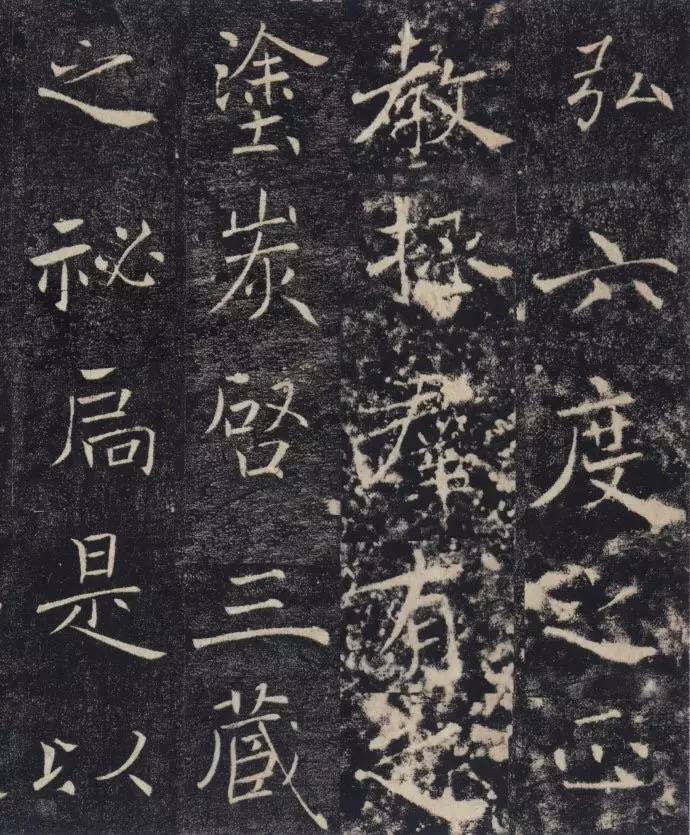 弘六度之正
教拯群有之
塗炭啓三藏
之祕扃是以